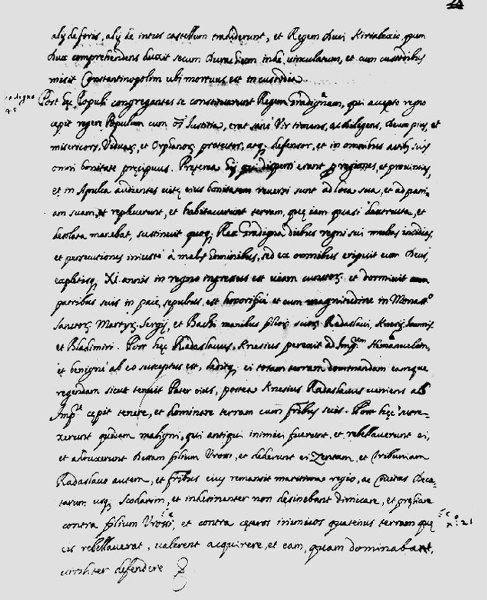 alij de foris, alij de intus castellum tradiderunt, et Regem duci Kirialexio, quem
dux comprehendens duxit secum Durachium inde vinculatum, et cum custodibus
misit Constantinopolim ubi mortuus est in custodia.
Post hęc Populi congregantes se constituerunt Regem Gradignam, qui accepto regno
cepit regere Populum cum omni Iustitia, erat enim Vir timens, ac diligens, deum pius, et
misericors, Viduas, et Orphanos protector, atque defensor, et in omnibus actibus suis
omni bonitate pręcipuus. Preterea qui dispersi erant per regiones, et provincias,
et in Apulia audientes eius bonitatem reversi sunt ad loca sua, et ad patri-
am suam, et repleverunt, et habitaverunt terram, quę iam quasi destructa, et
desolata manebat, sustinuit quoque Rex Gradigna diebus regni sui multas insidias,
et persecutiones iniuste a malis hominibus, sed ex omnibus eripuit eum Deus,
expletisque XI. annis in regno ingressus est viam universę et dormivit cum
patribus suis in pace, sepultus est honorifice et cum magnitudine in Monasto
Sanctorum Martyrum Sergij, et Bachi manibus filiorum suorum Radaslavi, Ioannis
et Bladimiri. Post hęc Radaslavus Knesius perexit ad Impem Emanuelem,
et benigne ab eo susceptus est, deditque ei totam terram dominandam eamque
regendam sicut tenuit Pater eius, postea Knesius Radaslavus veniens ab
Impre cepit tenere, et dominare terram cum fratribus suis. Post hęc surre-
xerunt quidem maligni, qui antiqui inimici fuerunt, et rebellaverunt ei,
et adduxerunt Dessam filium Urossi, et dederunt ei Zentam, et Tribuniam
Radaslavo autem, et fratribus eius remansit maritima regio, ac Civitas Deca-
tarum usque Scodarim, et interim non desinebant dimicare, et pręliare
contra filium Urossi, et contra ceteros inimicos quatenus terram quę
eis rebellaverat, valerent acquirere, et eam, quam dominabant,
viriliter defendere